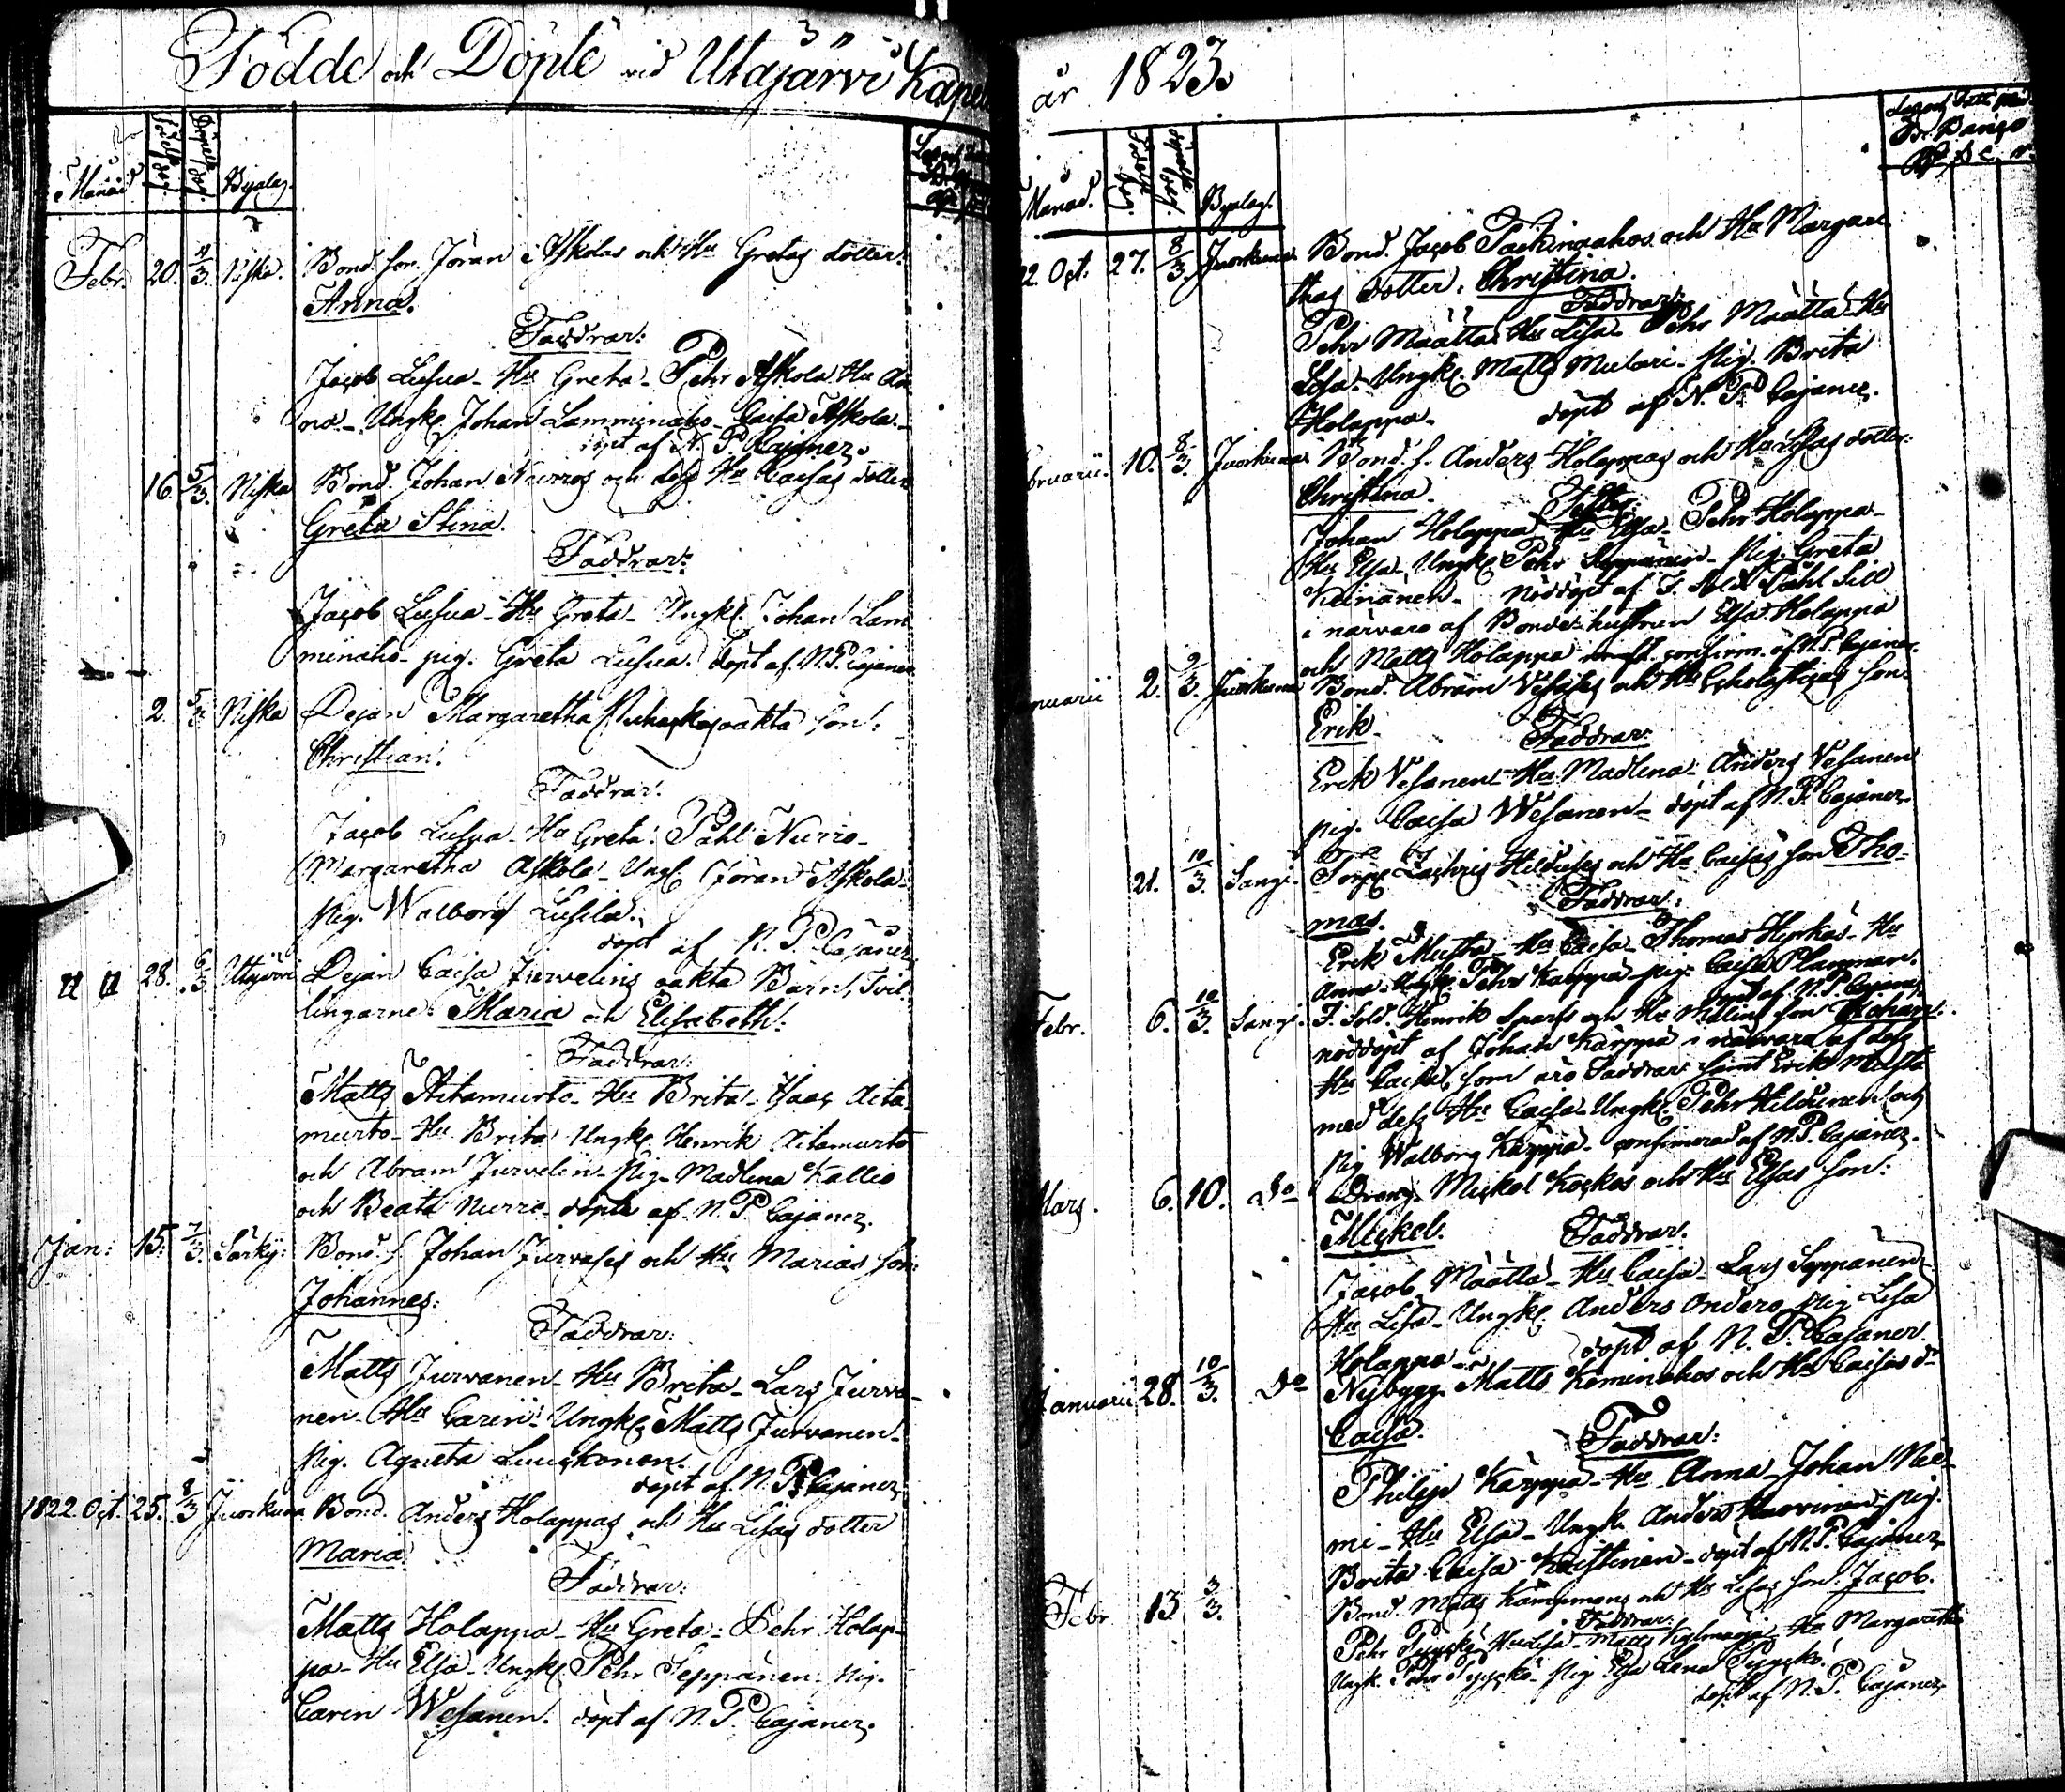 Födde och Döpte vid Utajärvi Kapell
Månad. Födelse dag. Döpelse dag. Byalag.
Febr. 20. 4/3. Niska. Bond. son. Jöran Askolas och Hu Gretas dotter:
Anna.
Faddrar:
Jacob Lusua - Hu Greta - Pehr Askola Hu An
na - Ungk. Johan Lamminaho - Caisa Askola -
döpt af N. P. Cajaner.
16. 5/3. Niska Bond. Johan Nurros och dess Hu Caisas dotter
Greta Stina.
Faddrar:
Jacob Lusua - Hu Greta - Ungk. Johan Lam
minaho - pig. Greta Lusua. döpt af N. P. Cajaner
2. 5/3 Niska Dejan Margaretha oäkta son:
Christian.
Faddrar:
Jacob Lusua - Hu Greta. Påhl Nurro -
Margaretha Askola - Ungk. Jöran Askola -
Pig. Walborg
döpt af N. P. Cajaner
28. 6/3. Utajärvi Dejan Caisa Jurvelins oäkta Barn, Tvil
lingarne: Maria och Elisabeth:
Faddrar:
Matts Aitamurto - Hu Brita - Isaac Aita
murto - Hu Brita Ungk. Henrik Aitamurto
och Abram Jurvelin - Pig. Madlena Kallio
och Beata Nurro - döpte af N. P. Cajaner.
Jan: 15. 7/3. Särki: Bond. s. Johan Jurvases och Hu Marias son:
Johannes:
Faddrar:
Matts Jurvanen - Hu Brita - Lars Jurva-
nen - Hu Carin: Ungk. Matts Jurvanen -
Pig. Agneta Luuckonen.
döpt af N. P. Cajaner
1822. Oct. 25. 8/3 Juorkuna Bond. Anders Holappas och Hu Lisas dotter
Maria
Faddrar:
Matts Holappa - Hu Greta: Pehr Holap-
pa - Hu Elsa - Ungk. Pehr Seppänen - Pig.
Carin Wesanen. döpt af N. P. Cajaner.
år 1823.
Månad. Födelse dag. Döpelse dag. Byalag.
22. Oct. 27. 8/3. Juorkuna Bond. Jacob och Hu Margare
thas dotter. Christina.
Faddrar:
Pehr Määtta Hu Lisa - Pehr Määtta Hu
Lisa - Ungk. Matts Mulari - Pig. Brita
Holappa - döpt af N. P. Cajaner.
bruarii. 10. 8/3. Juorkuna Bond. s. Anders Holappas och Hu Lisas dotter:
Christina.
Johan Holappa - Hu Elsa - Pehr Holappa -
Hu Elsa - Ungk. Pehr Seppänen - Pig. Greta
Keinänen - nöddöpt af Påhl Sill
i närvaro af Bonde hustrun Elsa Holappa
och Matts Holappa confirm. af N. P. Cajaner.
nuarii 2. 9/3. Juorkuna Bond. Abram Vesases och Hu Scholasticas son:
Erik.
Faddrar:
Erik Vesanen - Hu Madlena - Anders Vesanen
pig. Caisa Wesanen - döpt af N. P. Cajaner.
21. 10/3. Sangi. Torp. Zachris och Hu Caisas son Tho-
mas.
Faddrar:
Erik Musta - Hu Caisa - Thomas Hyrkäs - Hu
Anna - Ungk. Pehr Karppa - pig. Caisa Planman.
döpt af N. P. Cajaner
Febr. 6. 10/3. Sangi. F. Sold. Henrik Sparfs och Hu Malins son Johan.
nöddöpt af Johan Karppa i närvaro af dess
Hu Caisa, som äro Faddrar samt Erik Musta
med dess Hu Caisa - Ungk. Pehr Hildunen och
Pig Walborg Karppa - confirmerad af N. P. Cajaner.
Mars. 6. 10. Do Dräng. Mickel Koskos och Hu Elsas son:
Mickel.
Faddrar:
Jacob Määtta - Hu Caisa - Lars Seppänen -
Hu Lisa - Ungk. Anders Pig Lisa
Holappa - döpt af N. P. Cajaner.
Januarii 28. 10/3. Do Nybygg. Matts Keminahos och Hu Caisas dr
Caisa.
Faddrar:
Philip Karppa - Hu Anna - Johan Nie-
mi - Hu Elsa - Ungk. Anders pig.
Brita Caisa - döpt af N. P. Cajaner.
Febr 13 3/3. Bond. Matts och Hu Lisas son: Jacob.
Faddrar:
Pehr Hu Lisa - Matts Hu Margaretha
Ungk. Pehr Pig Elsa
döpt af N. P. Cajaner.